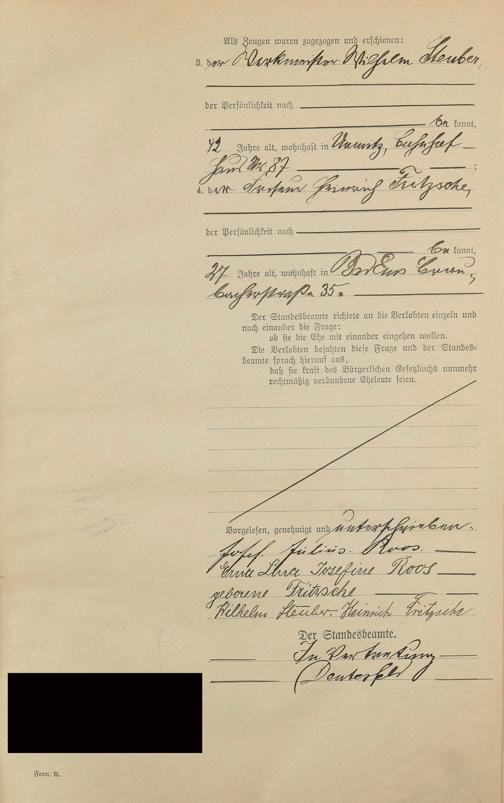 Als Zeugen waren zugezogen und erschienen:
3. der Werkmeister Wilhelm Steuber,
der Persönlichkeit nach
be kannt,
42 Jahre alt, wohnhaft in
haus Nr. 87 ;
4. der Heinrich Fritzsche,
der Persönlichkeit nach
be kannt,
27 Jahre alt, wohnhaft in Bad Ems Brau-
bacherstraße 35.
Der Standesbeamte richtete an die Verlobten einzeln und
nach einander die Frage:
ob sie die Ehe mit einander eingehen wollen.
Die Verlobten bejahten diese Frage und der Standes-
beamte sprach hierauf aus,
daß sie kraft des Bürgerlichen Gesetzbuchs nunmehr
rechtmäßig verbundene Eheleute seien.
Vorgelesen, genehmigt und unterschrieben.
Josef Julius Roos
Josefine Roos
geborene Fritzsche
Wilhelm Steuber. Heinrich Fritzsche
Der Standesbeamte.
In Vertretung
Form. B.